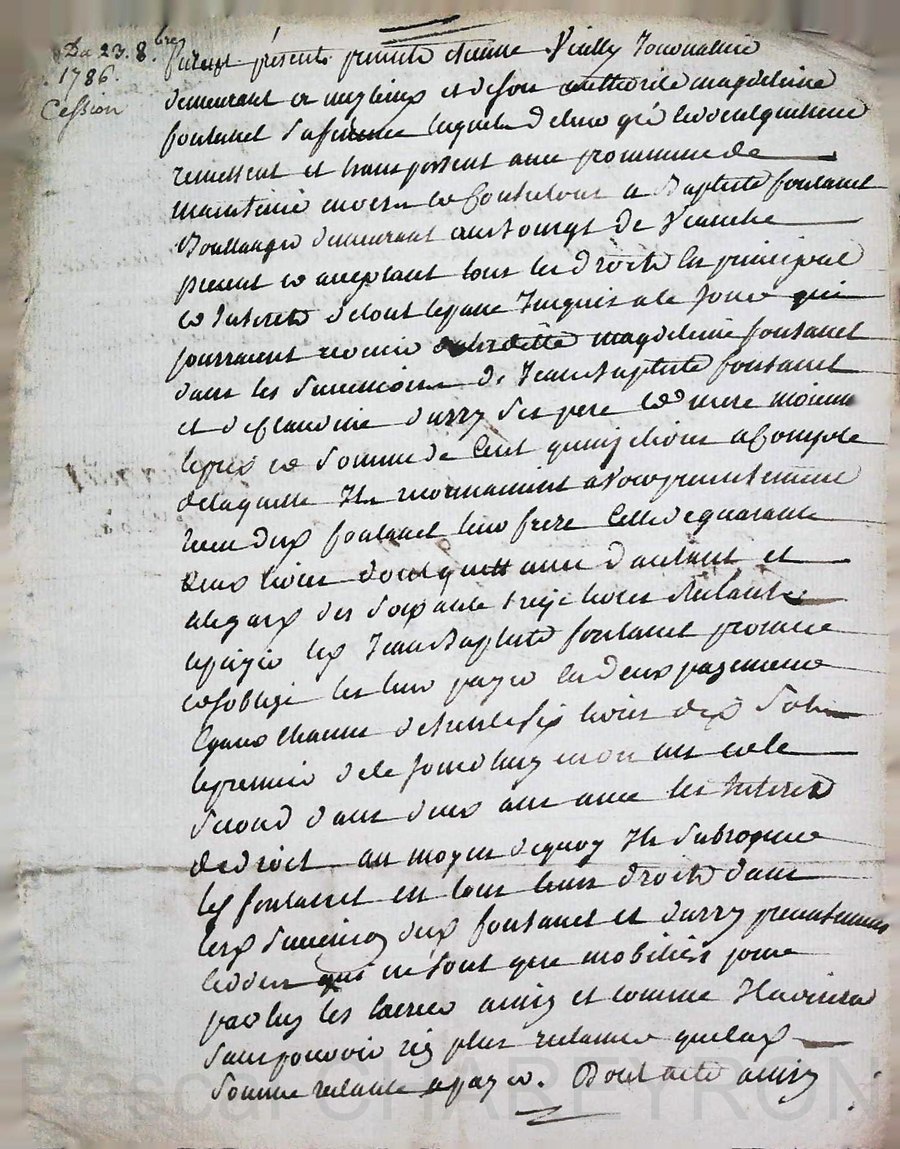 Du 23. 8.bre
1786.
Cession
furent présents Etienne Vially Journalier
demeurant et de son authorité magdelaine
fontanel sa femme lesquels de leur gré cedent quittent
remettent et transportent avec promesse de
maintenir envers et contre tous a Baptiste fontanel
Boullanger demeurant au bourgt de
present et acceptant tous les droits en principal
et Interets echus Jusqu'a ce Jour qui
pourraient revenir a la ditte magdelaine fontanel
dans les successions de Jean Baptiste fontanel
et de Claudine ses pere et mere moienn
le prix et somme de Cent quinze livres a Compte
de laquelle Ils reconnaissent avoir presentement
recu dud fontanel leur frere Celle de quarante
deux livres dont quittance d'autant et
a legard des Soixante treize livres restantes
a payer led Jean Baptiste fontanel promet
et soblige les leur payer en deux payements
Egaux chacun de trente six livres dix Sols
le premier de ce Jourdhuy en un an et le
second dans deux ans avec les Interets
de droit au moyen de quoy Ils subrogent
led fontanel en tous leurs droits dans
les successions dud fontanel et
qui ne sont que mobiliers pour
par luy les ainsy et comme Il avisera
sans pouvoir rien plus reclamer que lad
somme restante a payer. Dont acte ainsy
CHAREYRON